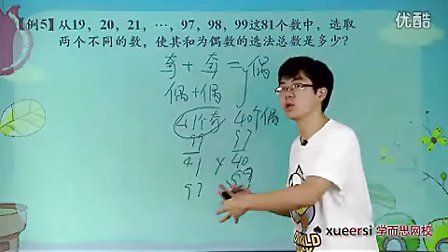 优酷
【例5】从19，20，21，…，97，98，99这81个数中，选取
两个不同的数，使其和为偶数的选法总数是多少？
奇 + 奇 = 偶
偶+偶
41个奇 40个偶
99 97
41 × 40
97 99
WORLD
xueersi 学而思网校